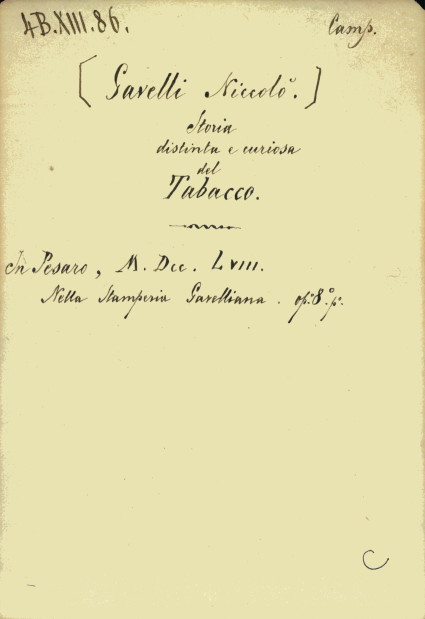 4B.XIII.86.
Camp.
[Gavelli Niccolò.]
Storia
distinta e curiosa
del
Tabacco.
In Pesaro, M. Dcc. LVIII.
Nella Stamperia Gavelliana. op. 8.° p.
C